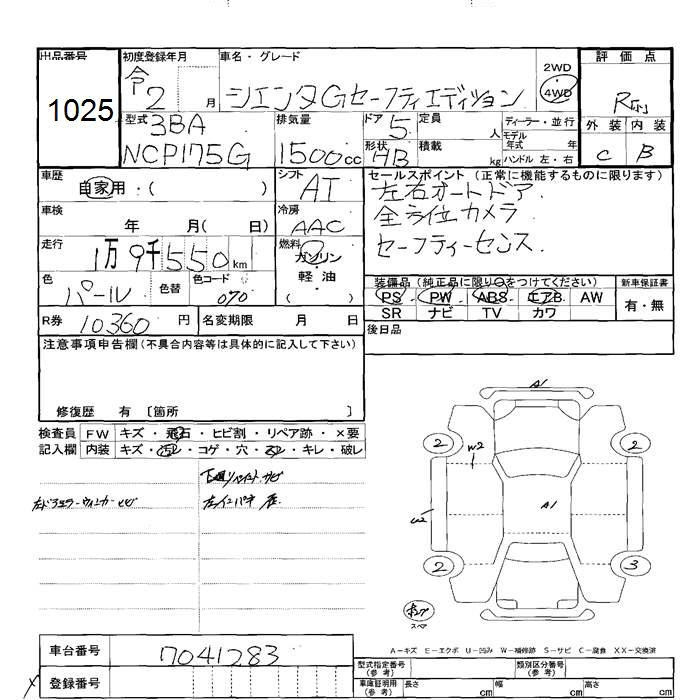 出品番号 初度登録年月 車名・グレード 評価点
1025 令2 月 シエンタGセーフティエディション 2WD 4WD R
型式 3BA 排気量 ドア 5 定員 人 ディーラー・並行 外装 内装
NCP175G 1500cc 形状 HB 積載 kg モデル年式 年 ハンドル 左・右 C B
車歴 自家用・( ) シフト AT セールスポイント(正常に機能するものに限ります)
左右オートドア
車検 年 月( 日) 冷房 AAC 全方位カメラ
走行 1万9千550km 燃料 ガソリン セーフティーセンス
軽・油
( )
色 パール 色替 色コード 070 装備品(純正品に限り○をつけてください) 新車保証書
PS PW ABS エアB AW 有・無
R券 10360円 名変期限 月 日 SR ナビ TV カワ
注意事項申告欄(不具合内容等は具体的に記入して下さい) 後日品
修復歴 有 〔箇所 〕
検査員 FW キズ・飛石・ヒビ割・リペア跡・×要
記入欄 内装 キズ・汚レ・コゲ・穴・スレ・キレ・破レ
下廻リペイント サビ
左ドアミラーウィンカー ヒビ 左インパネ
A1
2 2
W2
A1
W2
2 3
スペア
A-キズ E-エクボ U-凹み W-補修跡 S-サビ C-腐食 XX-交換済
車台番号 7041283 型式指定番号(参考) 類別区分番号(参考)
登録番号 車庫証明用(参考) 長さ cm 幅 cm 高さ cm